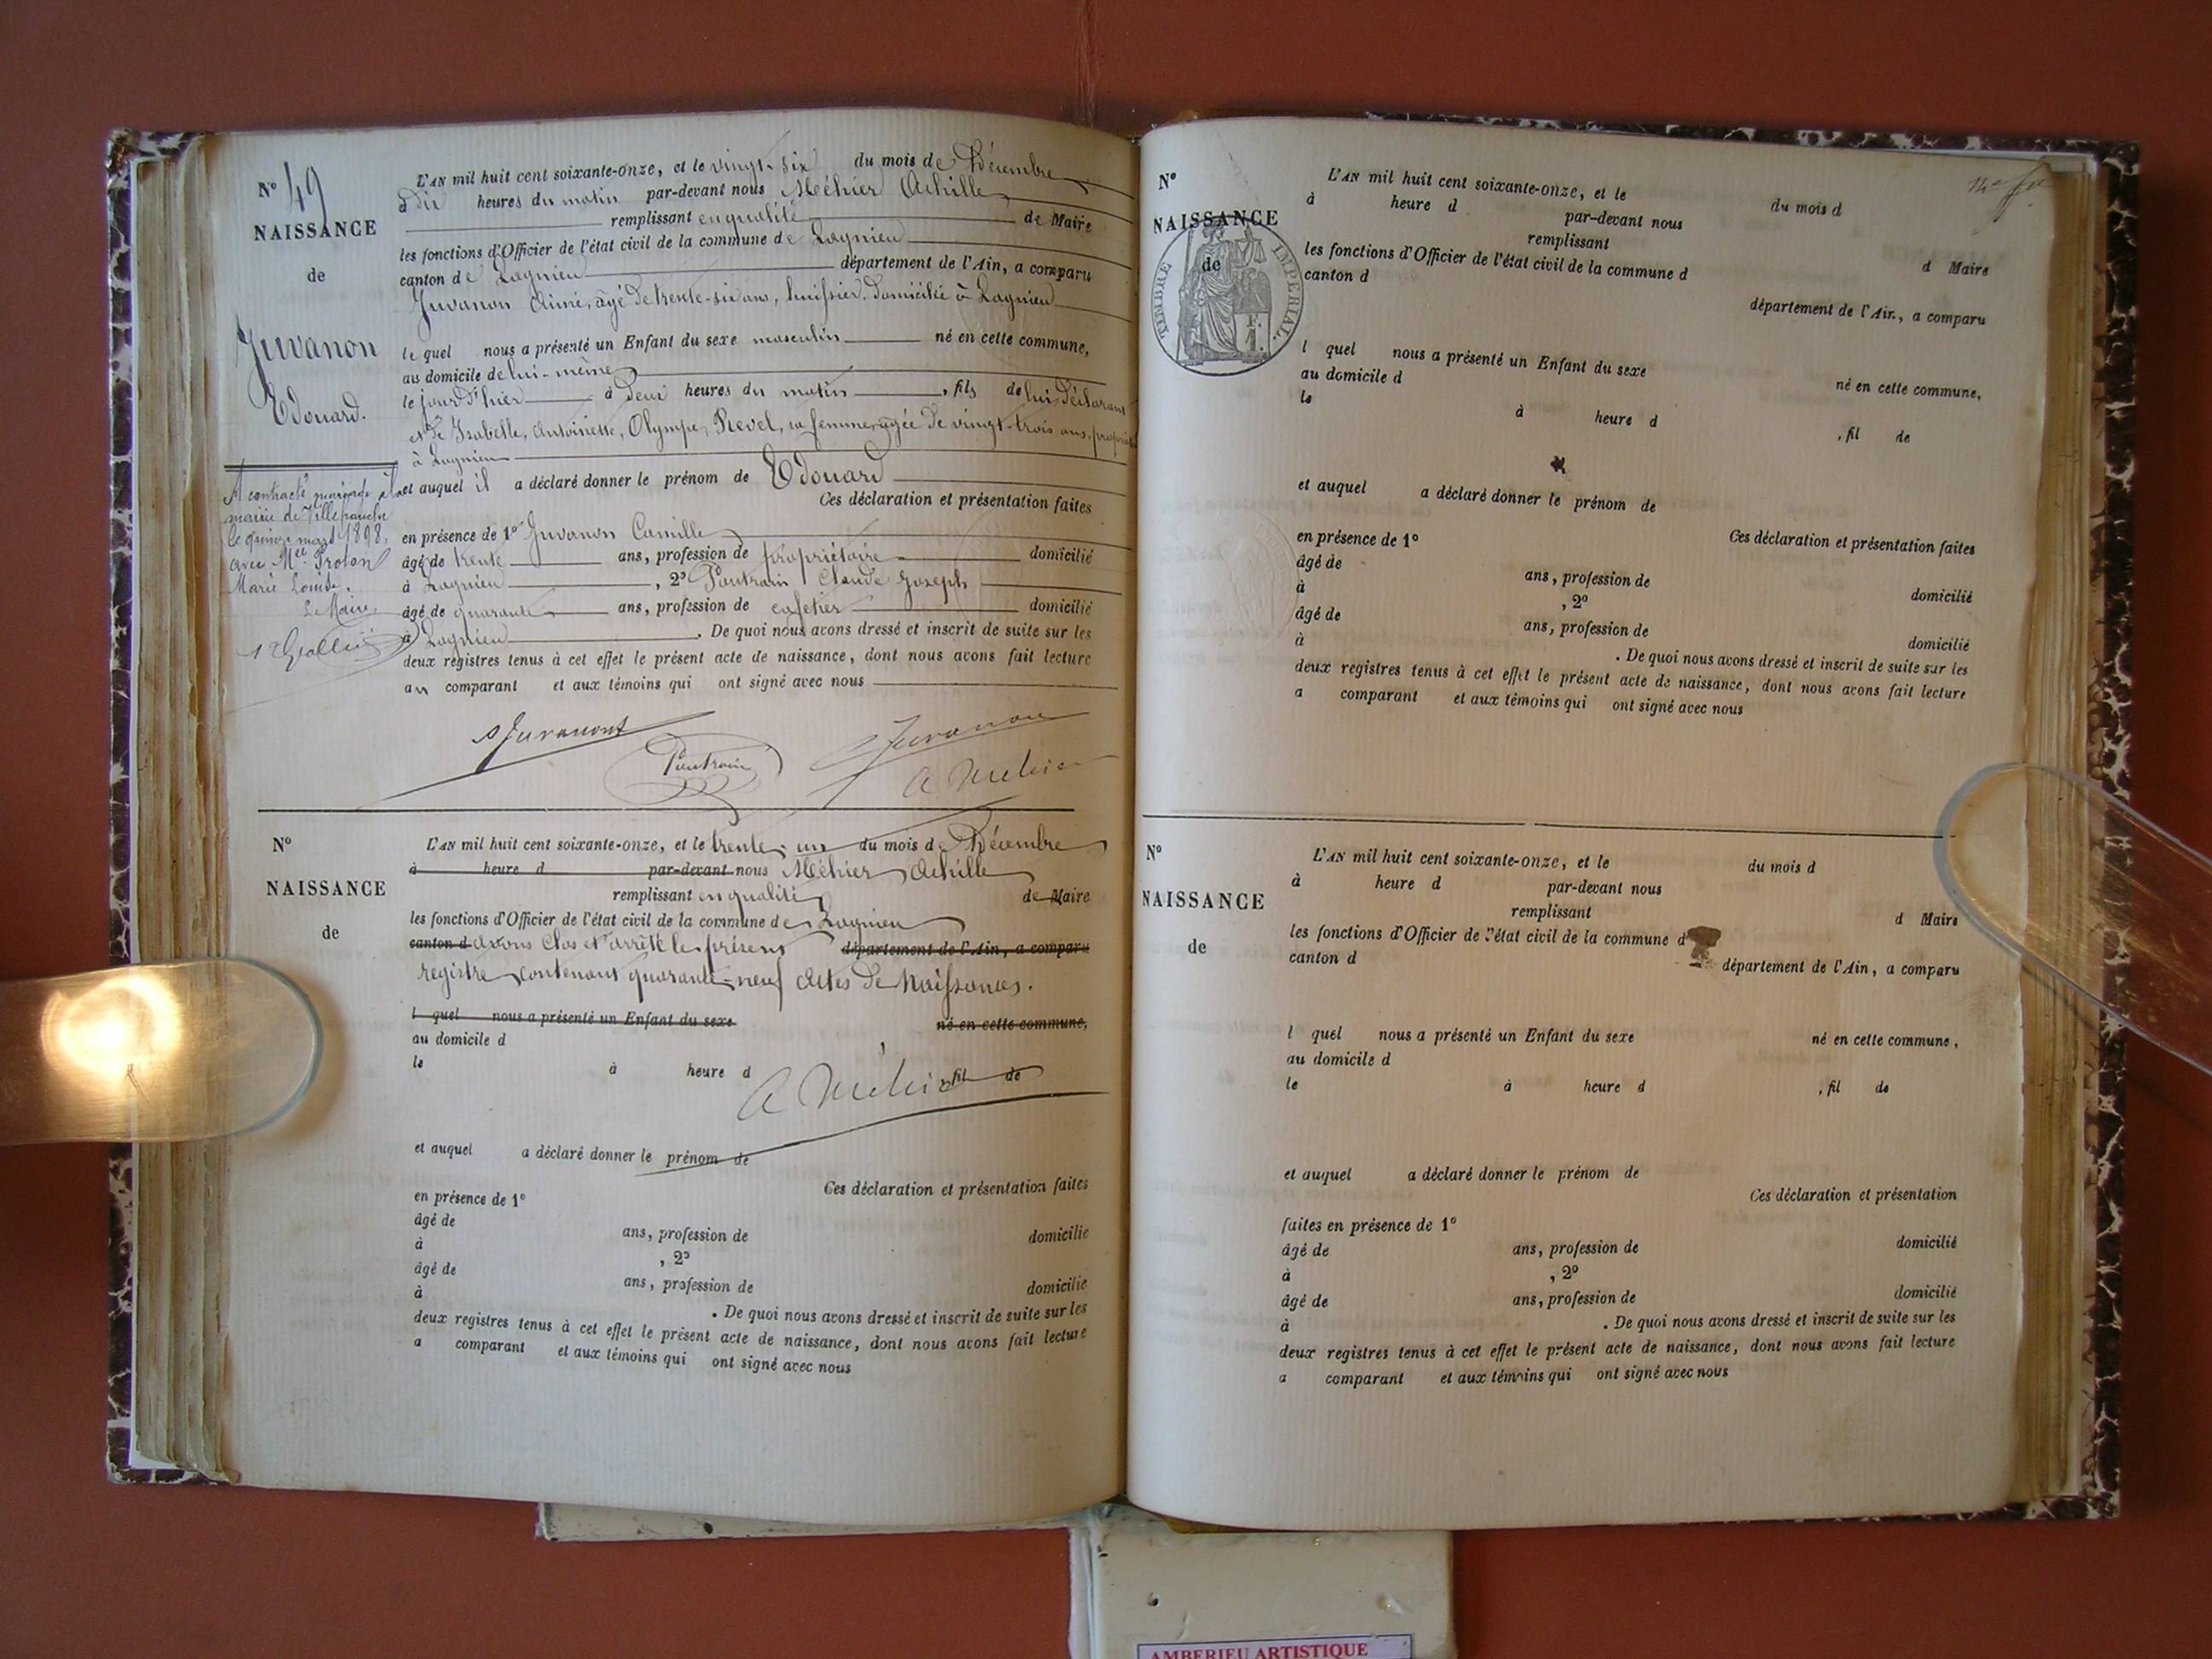 N° 49
NAISSANCE
de
Juvanon
Edouard.
A contracté mariage à la
mairie de Villefranche
le quinze mars 1898,
avec Melle
Marie Louise.
Le Maire,
L'AN mil huit cent soixante-onze, et le vingt-six du mois de Décembre
à dix heures du matin par-devant nous Méhier Achille
remplissant en qualité de Maire
les fonctions d'Officier de l'état civil de la commune de Lagnieu
canton de Lagnieu département de l'Ain, a comparu
Juvanon Aimé, âgé de trente-six ans, huissier, domicilié à Lagnieu
lequel nous a présenté un Enfant du sexe masculin né en cette commune,
au domicile de lui-même
le jour d'hier à deux heures du matin, fils de lui déclarant
et de Isabelle, Antoinette, Olympe, Revel, sa femme, âgée de vingt-trois ans,
à Lagnieu
et auquel il a déclaré donner le prénom de Edouard
Ces déclaration et présentation faites
en présence de 1° Juvanon Camille
âgé de trente ans, profession de propriétaire domicilié
à Lagnieu, 2° Pautrain Claude Joseph
âgé de quarante ans, profession de cafetier domicilié
à Lagnieu. De quoi nous avons dressé et inscrit de suite sur les
deux registres tenus à cet effet le présent acte de naissance, dont nous avons fait lecture
au comparant et aux témoins qui ont signé avec nous
Juvanon
Juvanon
Pautrain
A Méhier
N°
NAISSANCE
de
L'AN mil huit cent soixante-onze, et le trente-un du mois de Décembre
à heure d par-devant nous Méhier Achille
remplissant en qualité de Maire
les fonctions d'Officier de l'état civil de la commune de Lagnieu
canton d avons clos et arrêté le présent département de l'Ain, a comparu
registre contenant quarante-neuf actes de Naissances.
l quel nous a présenté un Enfant du sexe né en cette commune,
au domicile d
le à heure d , fil de
A Méhier
et auquel a déclaré donner le prénom de
Ces déclaration et présentation faites
en présence de 1°
âgé de ans, profession de domicilié
à , 2°
âgé de ans, profession de domicilié
à . De quoi nous avons dressé et inscrit de suite sur les
deux registres tenus à cet effet le présent acte de naissance, dont nous avons fait lecture
a comparant et aux témoins qui ont signé avec nous
N°
NAISSANCE
de
TIMBRE IMPERIAL
L'AN mil huit cent soixante-onze, et le du mois d
à heure d par-devant nous
remplissant d Maire
les fonctions d'Officier de l'état civil de la commune d
canton d département de l'Ain, a comparu
l quel nous a présenté un Enfant du sexe né en cette commune,
au domicile d
le à heure d , fil de
et auquel a déclaré donner le prénom de
Ces déclaration et présentation faites
en présence de 1°
âgé de ans, profession de domicilié
à , 2°
âgé de ans, profession de domicilié
à . De quoi nous avons dressé et inscrit de suite sur les
deux registres tenus à cet effet le présent acte de naissance, dont nous avons fait lecture
a comparant et aux témoins qui ont signé avec nous
N°
NAISSANCE
de
L'AN mil huit cent soixante-onze, et le du mois d
à heure d par-devant nous
remplissant d Maire
les fonctions d'Officier de l'état civil de la commune d
canton d département de l'Ain, a comparu
l quel nous a présenté un Enfant du sexe né en cette commune,
au domicile d
le à heure d , fil de
et auquel a déclaré donner le prénom de
Ces déclaration et présentation
faites en présence de 1°
âgé de ans, profession de domicilié
à , 2°
âgé de ans, profession de domicilié
à . De quoi nous avons dressé et inscrit de suite sur les
deux registres tenus à cet effet le présent acte de naissance, dont nous avons fait lecture
a comparant et aux témoins qui ont signé avec nous
AMBERIEU ARTISTIQUE